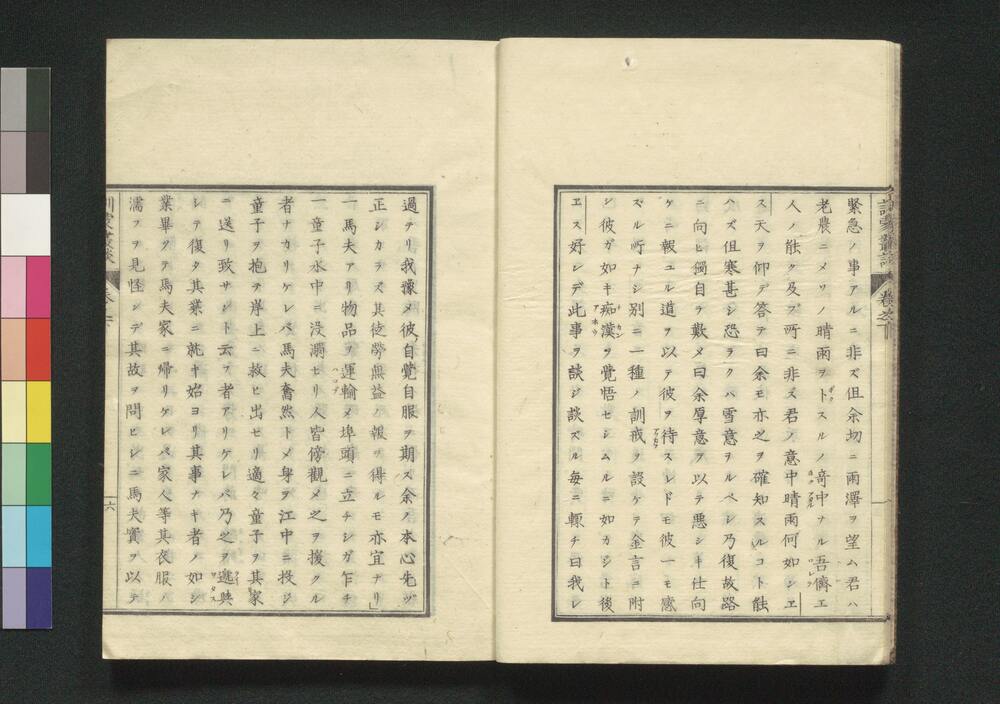 緊急ノ事アルニ非ズ但余切ニ雨澤ヲ望ム君ハ
老農ニメソノ晴雨ヲトスルノ奇中ナル吾儕エ
人ノ能ク及ブ所ニ非ズ君ノ意中晴雨何如シヱ
ス天ヲ仰デ答テ曰余モ亦之ヲ確知スルコト能
ハズ但寒甚シ恐ラクハ雪意ヲルベシ乃復故路
ニ向ヒ獨自ラ歎メ曰余厚意ヲ以テ悪シキ仕向
ケニ報ユル道ヲ以テ彼ヲ待スレドモ彼一モ感
ズル所ナシ別ニ一種ノ訓戒ヲ設ケテ金言ニ附
シ彼ガ如キ痴漢ヲ覺悟セシムルニ如カジト後
エス好レデ此事ヲ談ジ談ズル毎ニ輙チ曰我レ
過テリ我豫メ彼自覺自服ヲ期ス余ノ本心先ヅ
正シカラズ其徒勞無益ノ報ヲ得ルモ亦宜ナリ
一馬夫アリ物品ヲ運輸メ埠頭ニ立チシガ乍チ
一童子水中ニ没溺セリ人皆傍觀メ之ヲ援クル
者ナカリケレバ馬夫奮然トメ身ヲ江中ニ投ジ
童子ヲ抱テ岸上ニ救ヒ出セリ適々童子ヲ其家
ニ送リ致サント云フ者アリケレバ乃之ヲ遞與
シテ復タ其業ニ就キ始ヨリ其事ナキ者ノ如シ
業畢クテ馬夫家ニ帰リケレバ家人等其衣服ノ
濡フヲ見怪シデ其故ヲ問ヒシニ馬夫實ヲ以テ
六